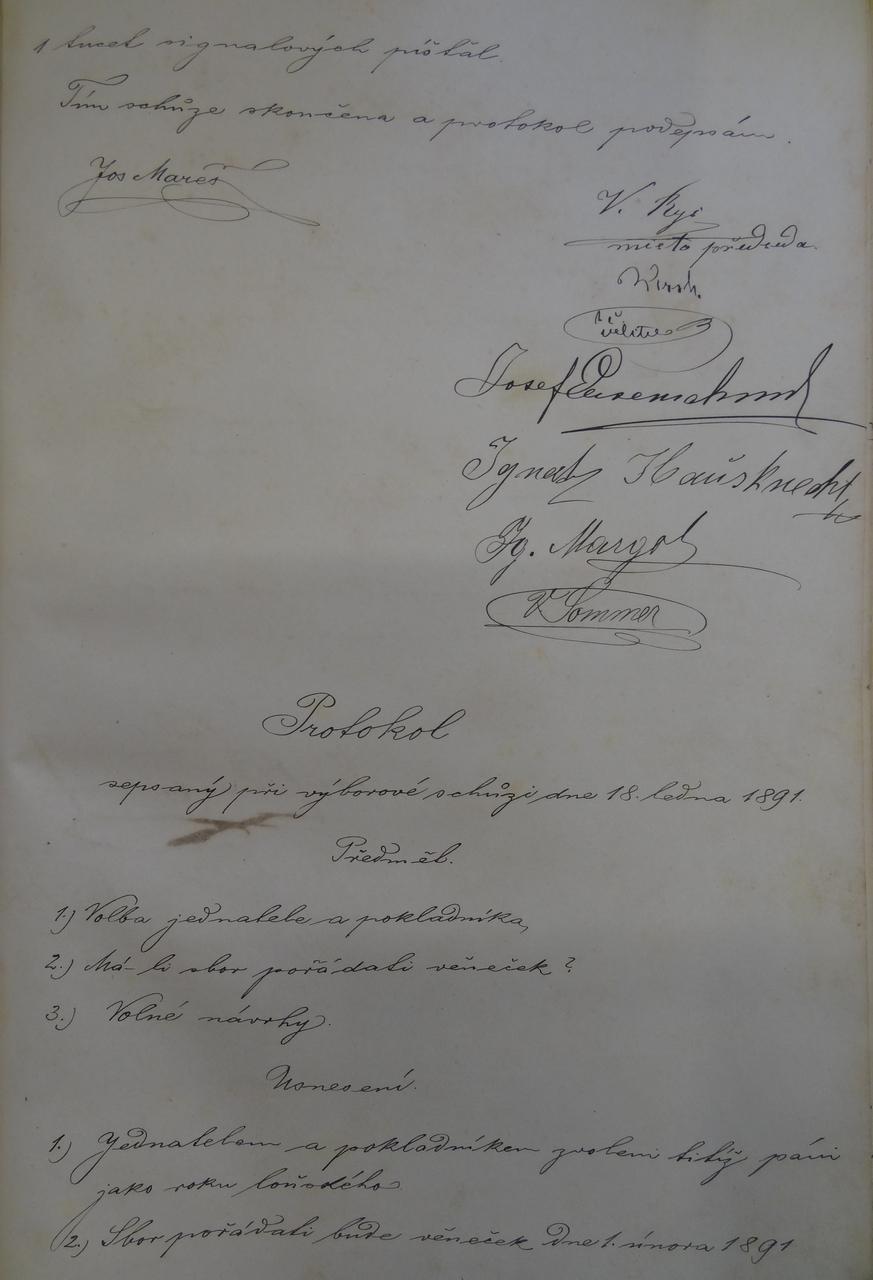 1 tucet signalových píštal.
Tím schůze skončena a protokol podepsán.
Jos Mareš
V. Ryš
místo předseda.
velitel
Josef Eisenschmid
Ignatz Hausknecht
Ig. Margol
V Sommer
Protokol
sepsaný při výborové schůzi dne 18. ledna 1891.
Předmět.
1.) Volba jednatele a pokladníka,
2.) Má-li sbor pořádati věneček?
3.) Volné návrhy.
Usnesení.
1.) Jednatelem a pokladníkem zvoleni titíž páni
jako roku loňského
2.) Sbor pořádati bude věneček dne 1. února 1891